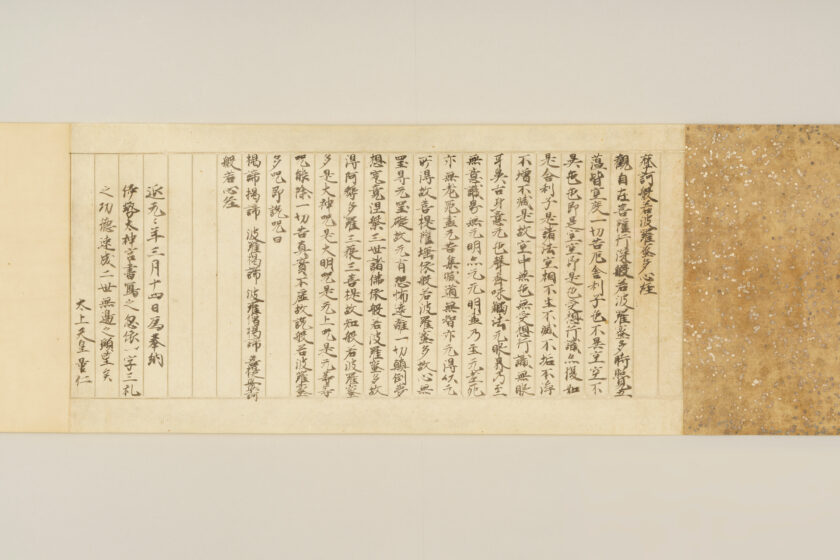 摩訶般若波羅蜜多心経
観自在菩薩行深般若波羅蜜多時照見五
蘊皆空度一切苦厄舎利子色不異空空不
異色色即是空空即是色受想行識亦復如
是舎利子是諸法空相不生不滅不垢不浄
不増不減是故空中無色無受想行識無眼
耳鼻舌身意无色聲香味觸法无眼界乃至
無意識界無无明亦无无明盡乃至无老死
亦無老死盡无苦集滅道無智亦无得以无
所得故菩提薩埵依般若波羅蜜多故心無
罣礙无罣礙故无有恐怖遠離一切顛倒夢
想究竟涅槃三世諸佛依般若波羅蜜多故
得阿耨多羅三藐三菩提故知般若波羅蜜
多是大神呪是大明呪是无上呪是无等等
呪能除一切苦真實不虚故説般若波羅蜜
多呪即説呪曰
揭諦揭諦 波羅揭諦 波羅僧揭諦 菩提娑婆訶
般若心経
延元々年三月十四日為奉納
伊勢太神宮書寫之忽依一字三礼
之功德速成二世無邊之願望矣
太上天皇量仁